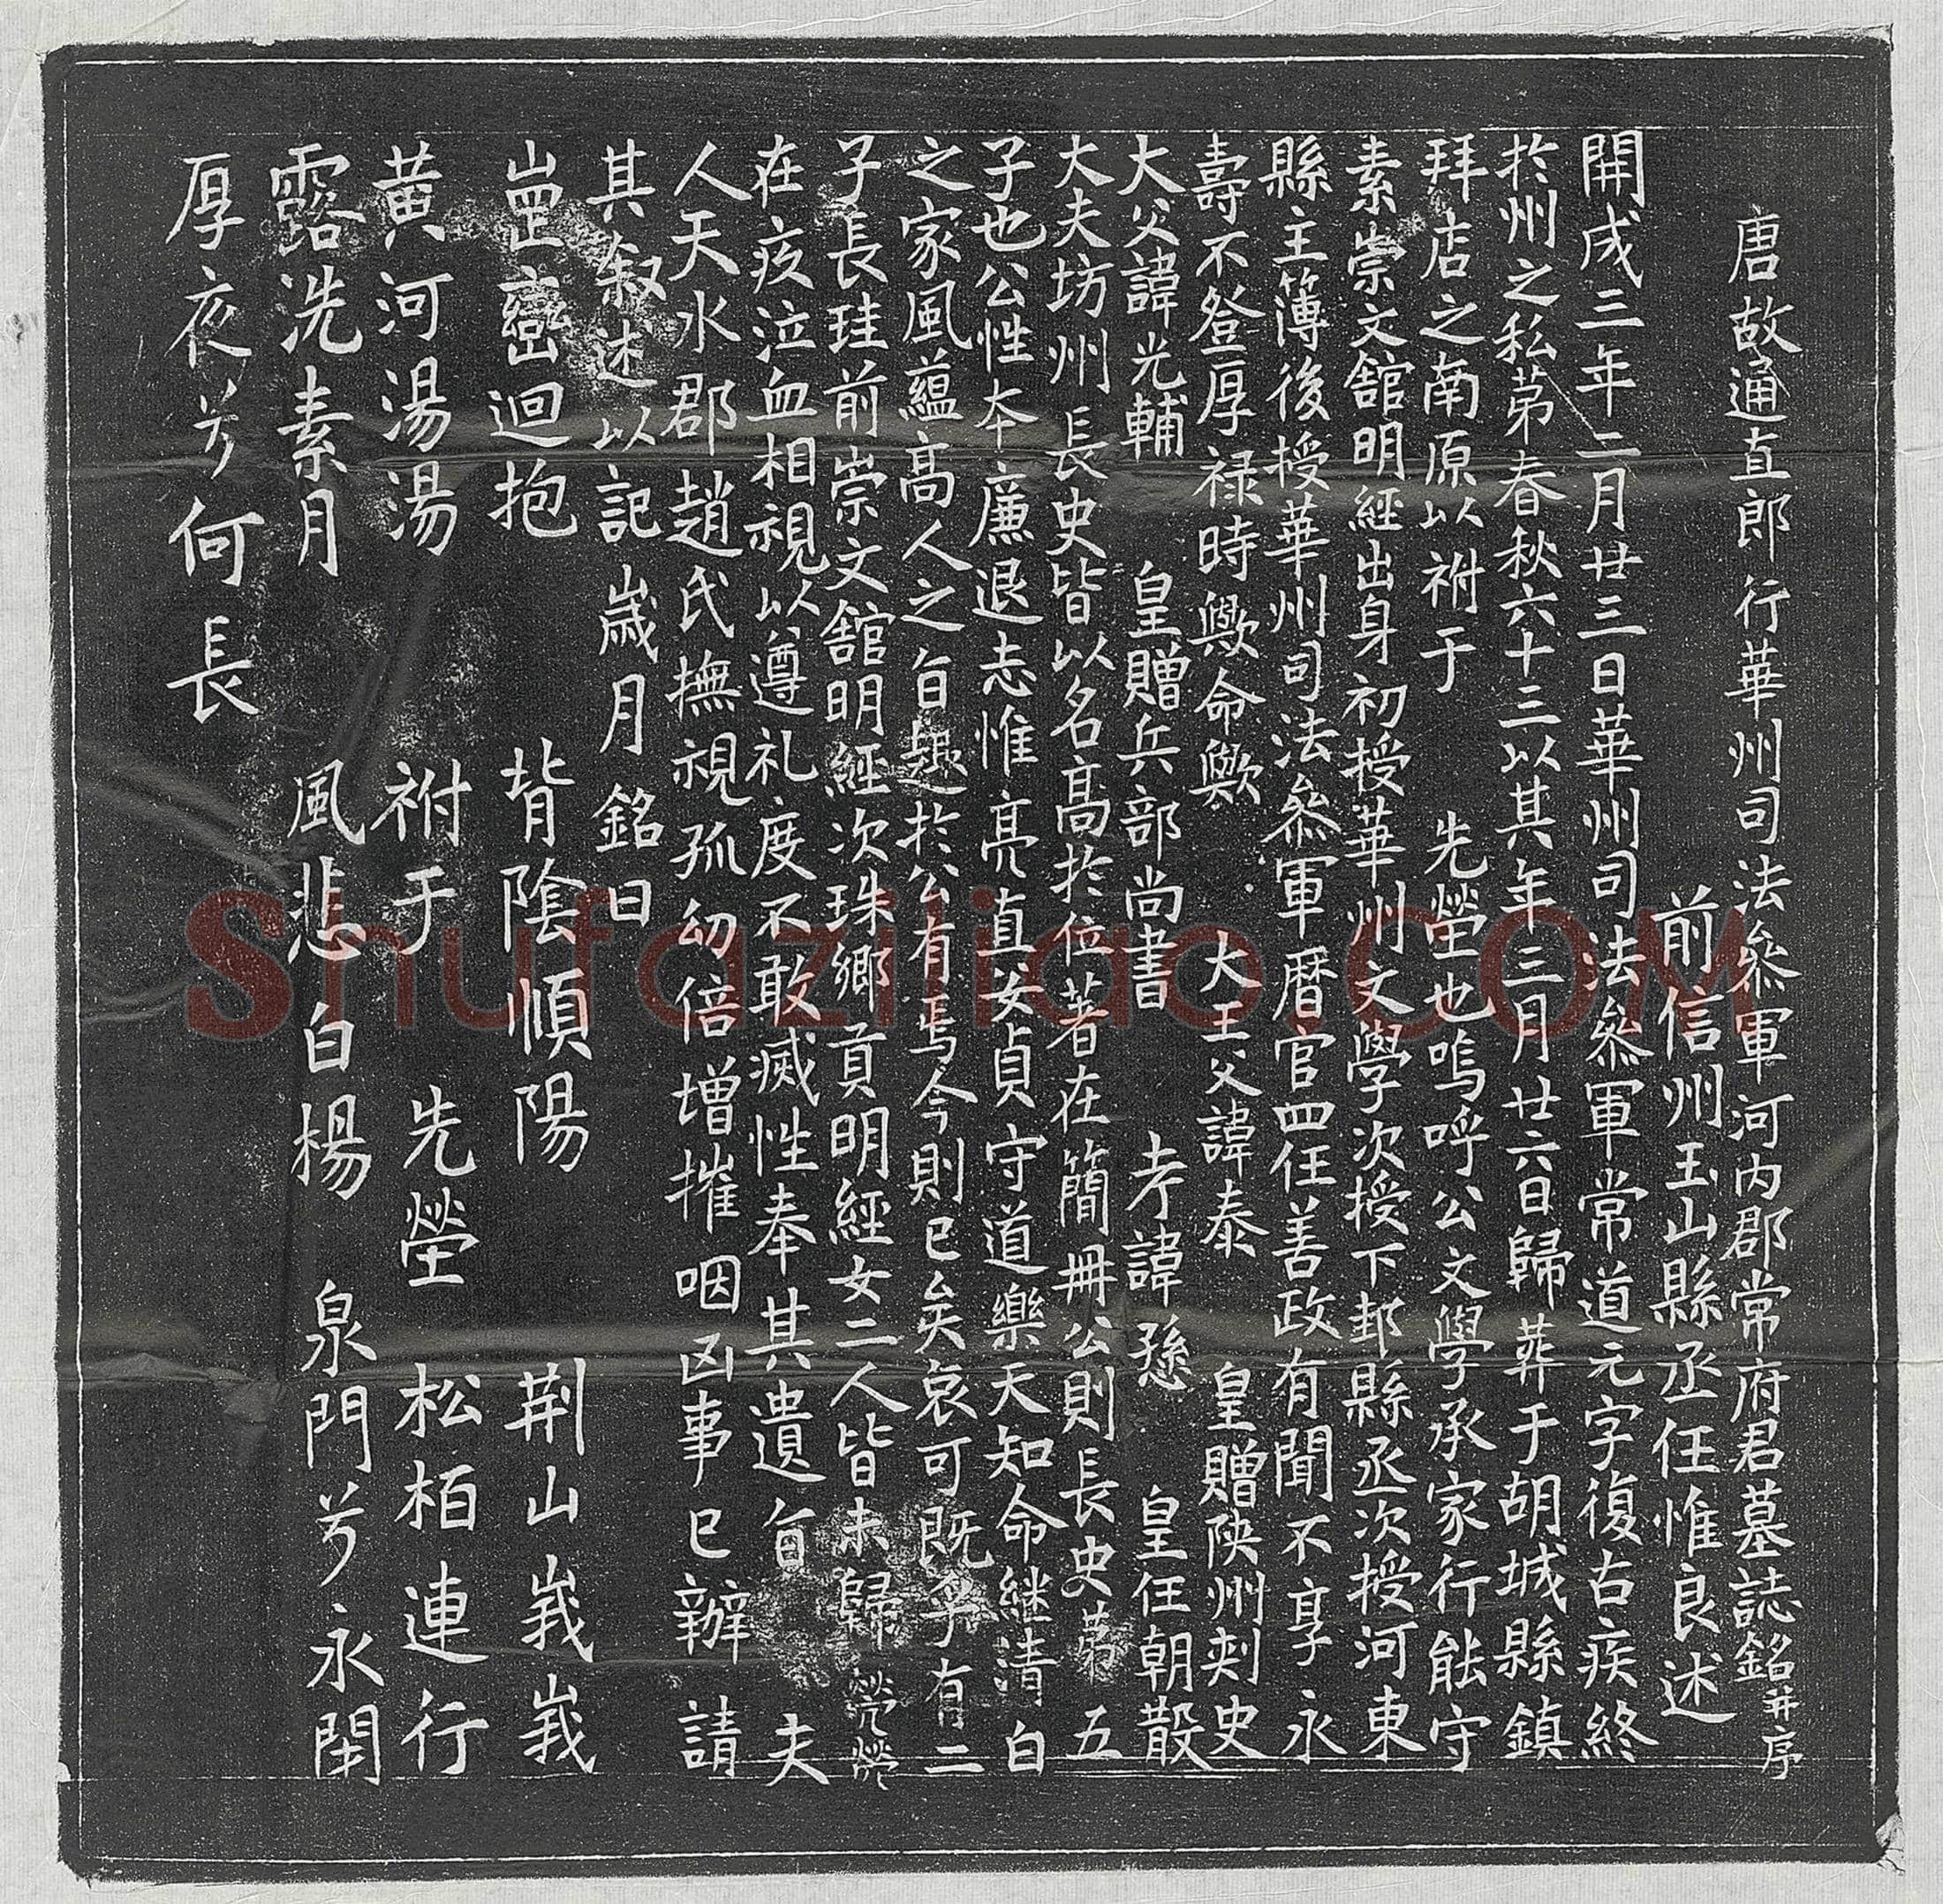 唐故通直郎行華州司法叅軍河內郡常府君墓誌銘并序
前信州玉山縣丞任惟良述
開成三年二月廿三日華州司法叅軍常道元字復古疾終
於州之私苐春秋六十三以其年三月廿六日歸葬于胡城縣鎮
拜店之南原以祔于先塋也嗚呼公文學承家行能守
素崇文舘明經出身初授華州文學次授下邽縣丞次授河東
縣主簿後授華州司法叅軍曆官四任善政有聞不享永
壽不登厚禄時歟命歟大王父諱泰皇贈陝州刾史
大父諱光輔皇贈兵部尚書考諱愻皇任朝散
大夫坊州長史皆以名高於位著在簡冊公則長史苐五
子也公性本廉退志惟亮直安貞守道樂天知命継清白
之家風蘊高人之旨趣於公有焉今則已矣哀可既乎有二
子長珪前崇文舘明經次珠鄉貢明經女二人皆未歸煢煢
在疚泣血相視以遵礼度不敢滅性奉其遺旨夫
人天水郡趙氏撫視孤幼倍增摧咽凶事已辦請
其叙述以記歲月銘曰
崗巒迴抱背陰順陽荆山峩峩
黄河湯湯祔于先塋松栢連行
露洗素月風悲白楊泉門兮永閇
厚夜兮何長
Shufaziliao.COM